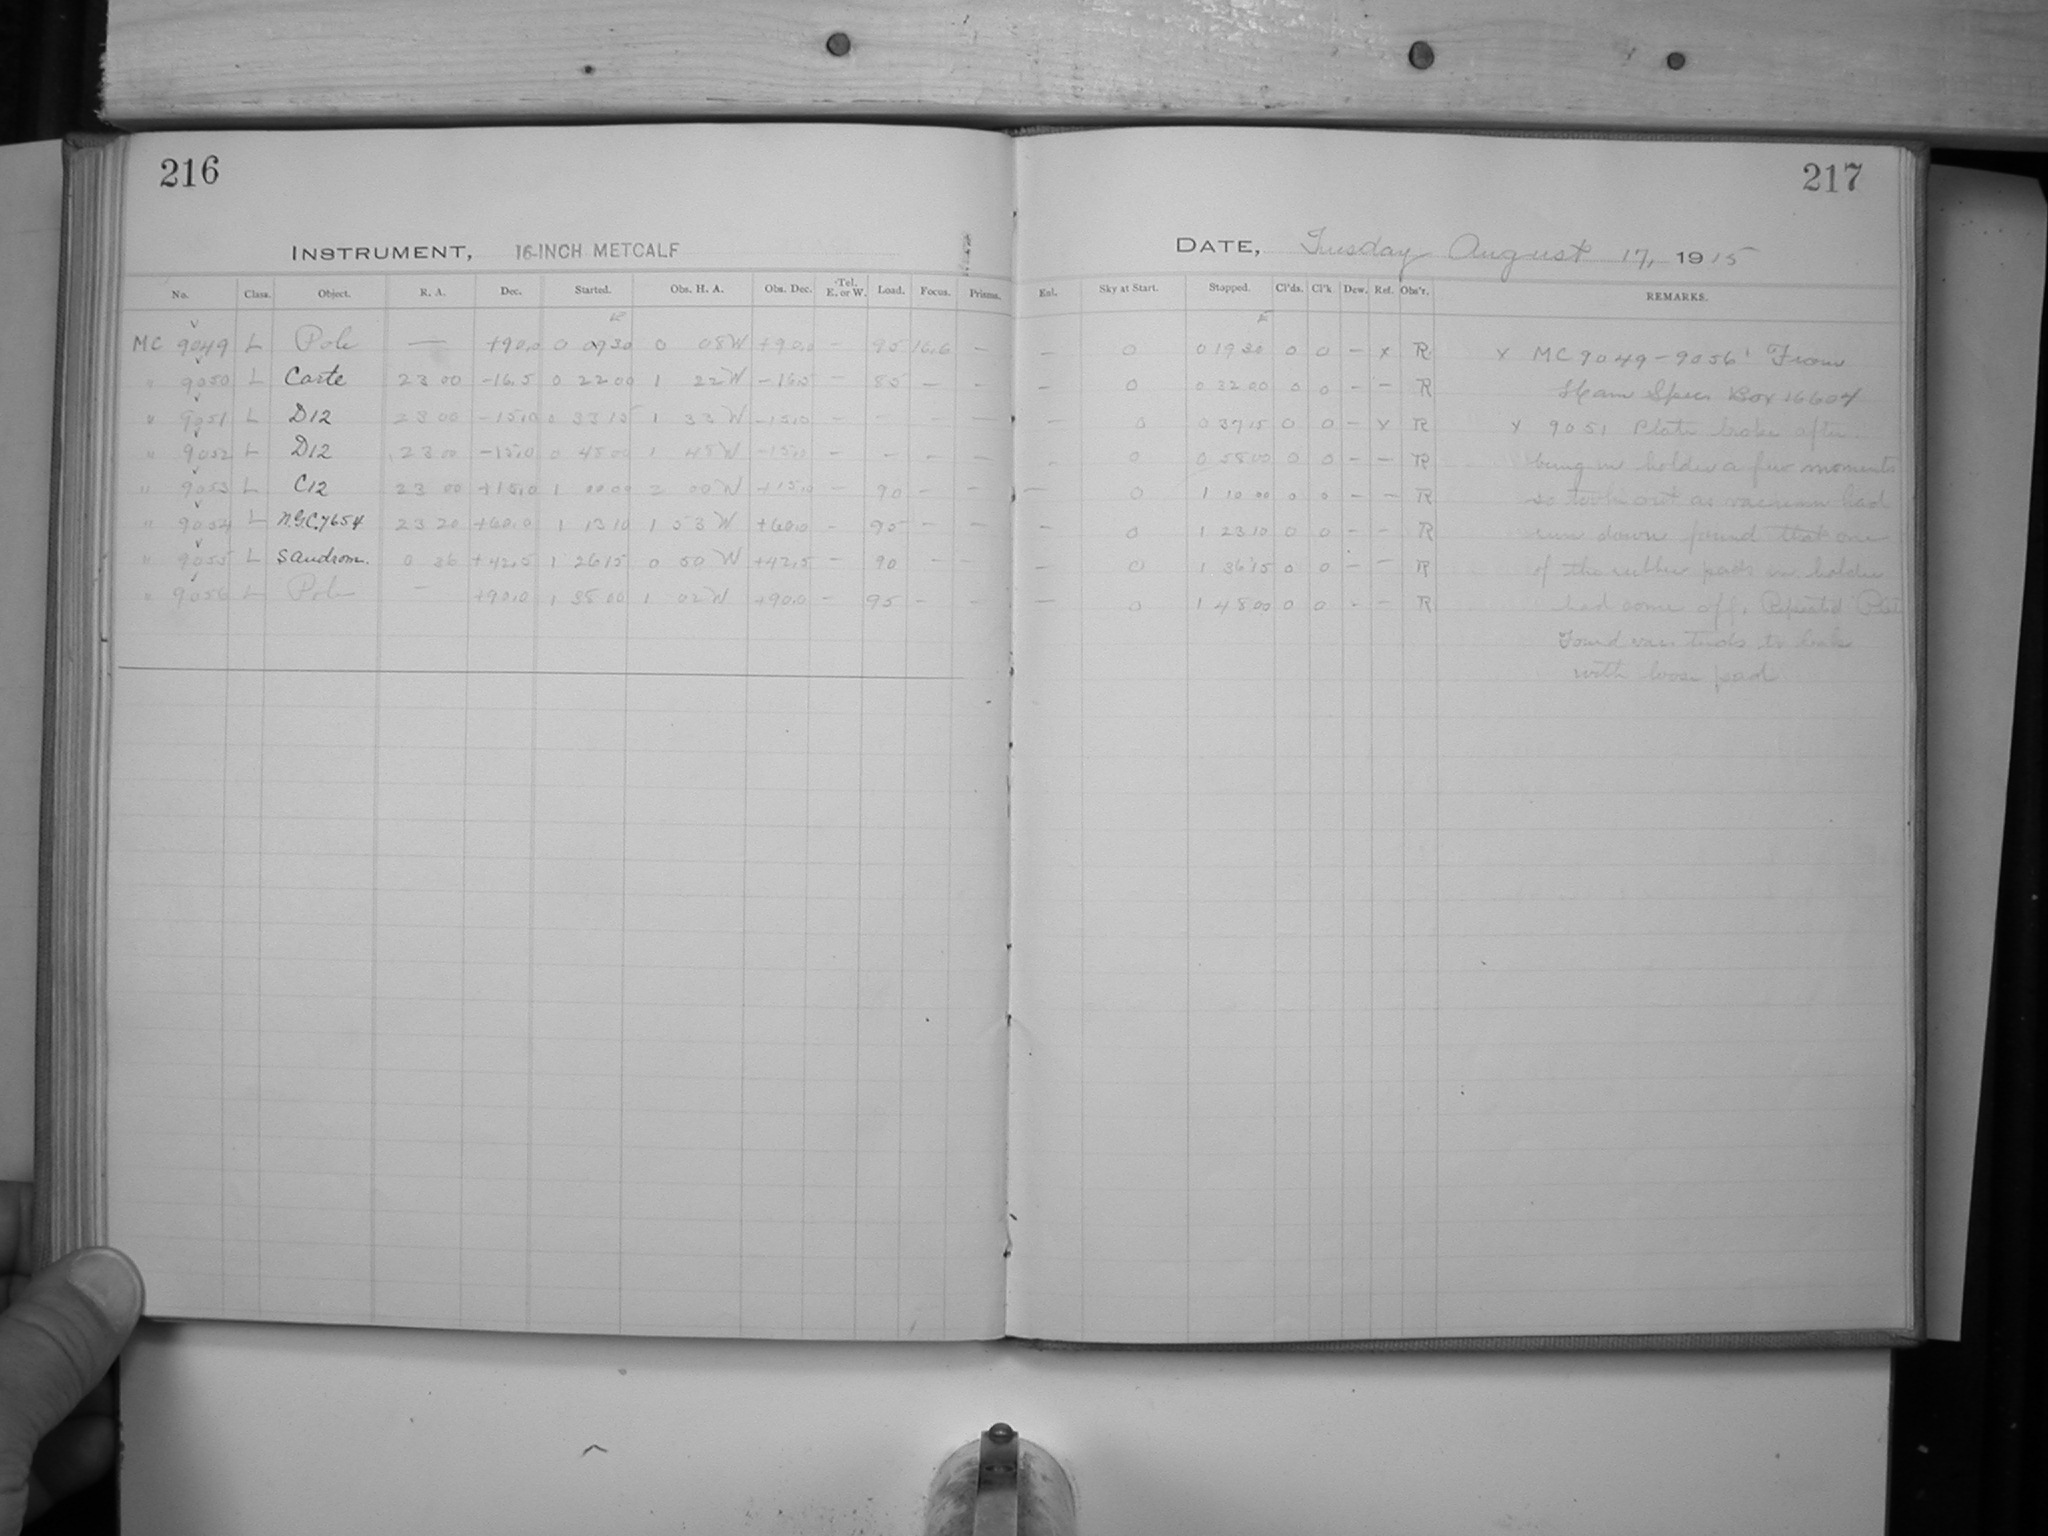 216
INSTRUMENT, 16-INCH METCALF
No. Class. Object. R. A. Dec. Started. Obs. H. A. Obs. Dec. Tel. E. or W. Load. Focus. Prisms.
MC 9049 L Pole — +90.0 0 09 30 0 08 W +90.0 – 95 16.6 –
" 9050 L Carte 23 00 -16.5 0 22 00 1 22 W -16.5 – 85 – –
" 9051 L D12 23 00 -15.0 0 33 15 1 33 W -15.0 – – – –
" 9052 L D12 23 00 -15.0 0 48 00 1 48 W -15.0 – – – –
" 9053 L C12 23 00 +15.0 1 00 00 2 00 W +15.0 – 90 – –
" 9054 L N.G.C.7654 23 20 +60.0 1 13 10 1 53 W +60.0 – 95 – –
" 9055 L Sandrom. 0 36 +42.5 1 26 15 0 50 W +42.5 – 90 – –
" 9056 L Pole — +90.0 1 38 00 1 02 W +90.0 – 95 – –
217
DATE, Tuesday August 17, 1915
Enl. Sky at Start. Stopped. Cl'ds. Cl'k Dew. Ref. Obs'r. REMARKS.
– 0 0 19 30 0 0 – x R x MC 9049-9056 From
– 0 0 32 00 0 0 – – R Ham Spec. Box 16604
– 0 0 37 15 0 0 – x R x 9051 Plate broke after
– 0 0 58 00 0 0 – – R being in holder a few moments
– 0 1 10 00 0 0 – – R so took out as vacuum had
– 0 1 23 10 0 0 – – R run down found that one
– 0 1 36 15 0 0 – – R of the rubber pads in holder
– 0 1 48 00 0 0 – – R had come off. Repeated Plate
Found vac. tends to
with loose pad